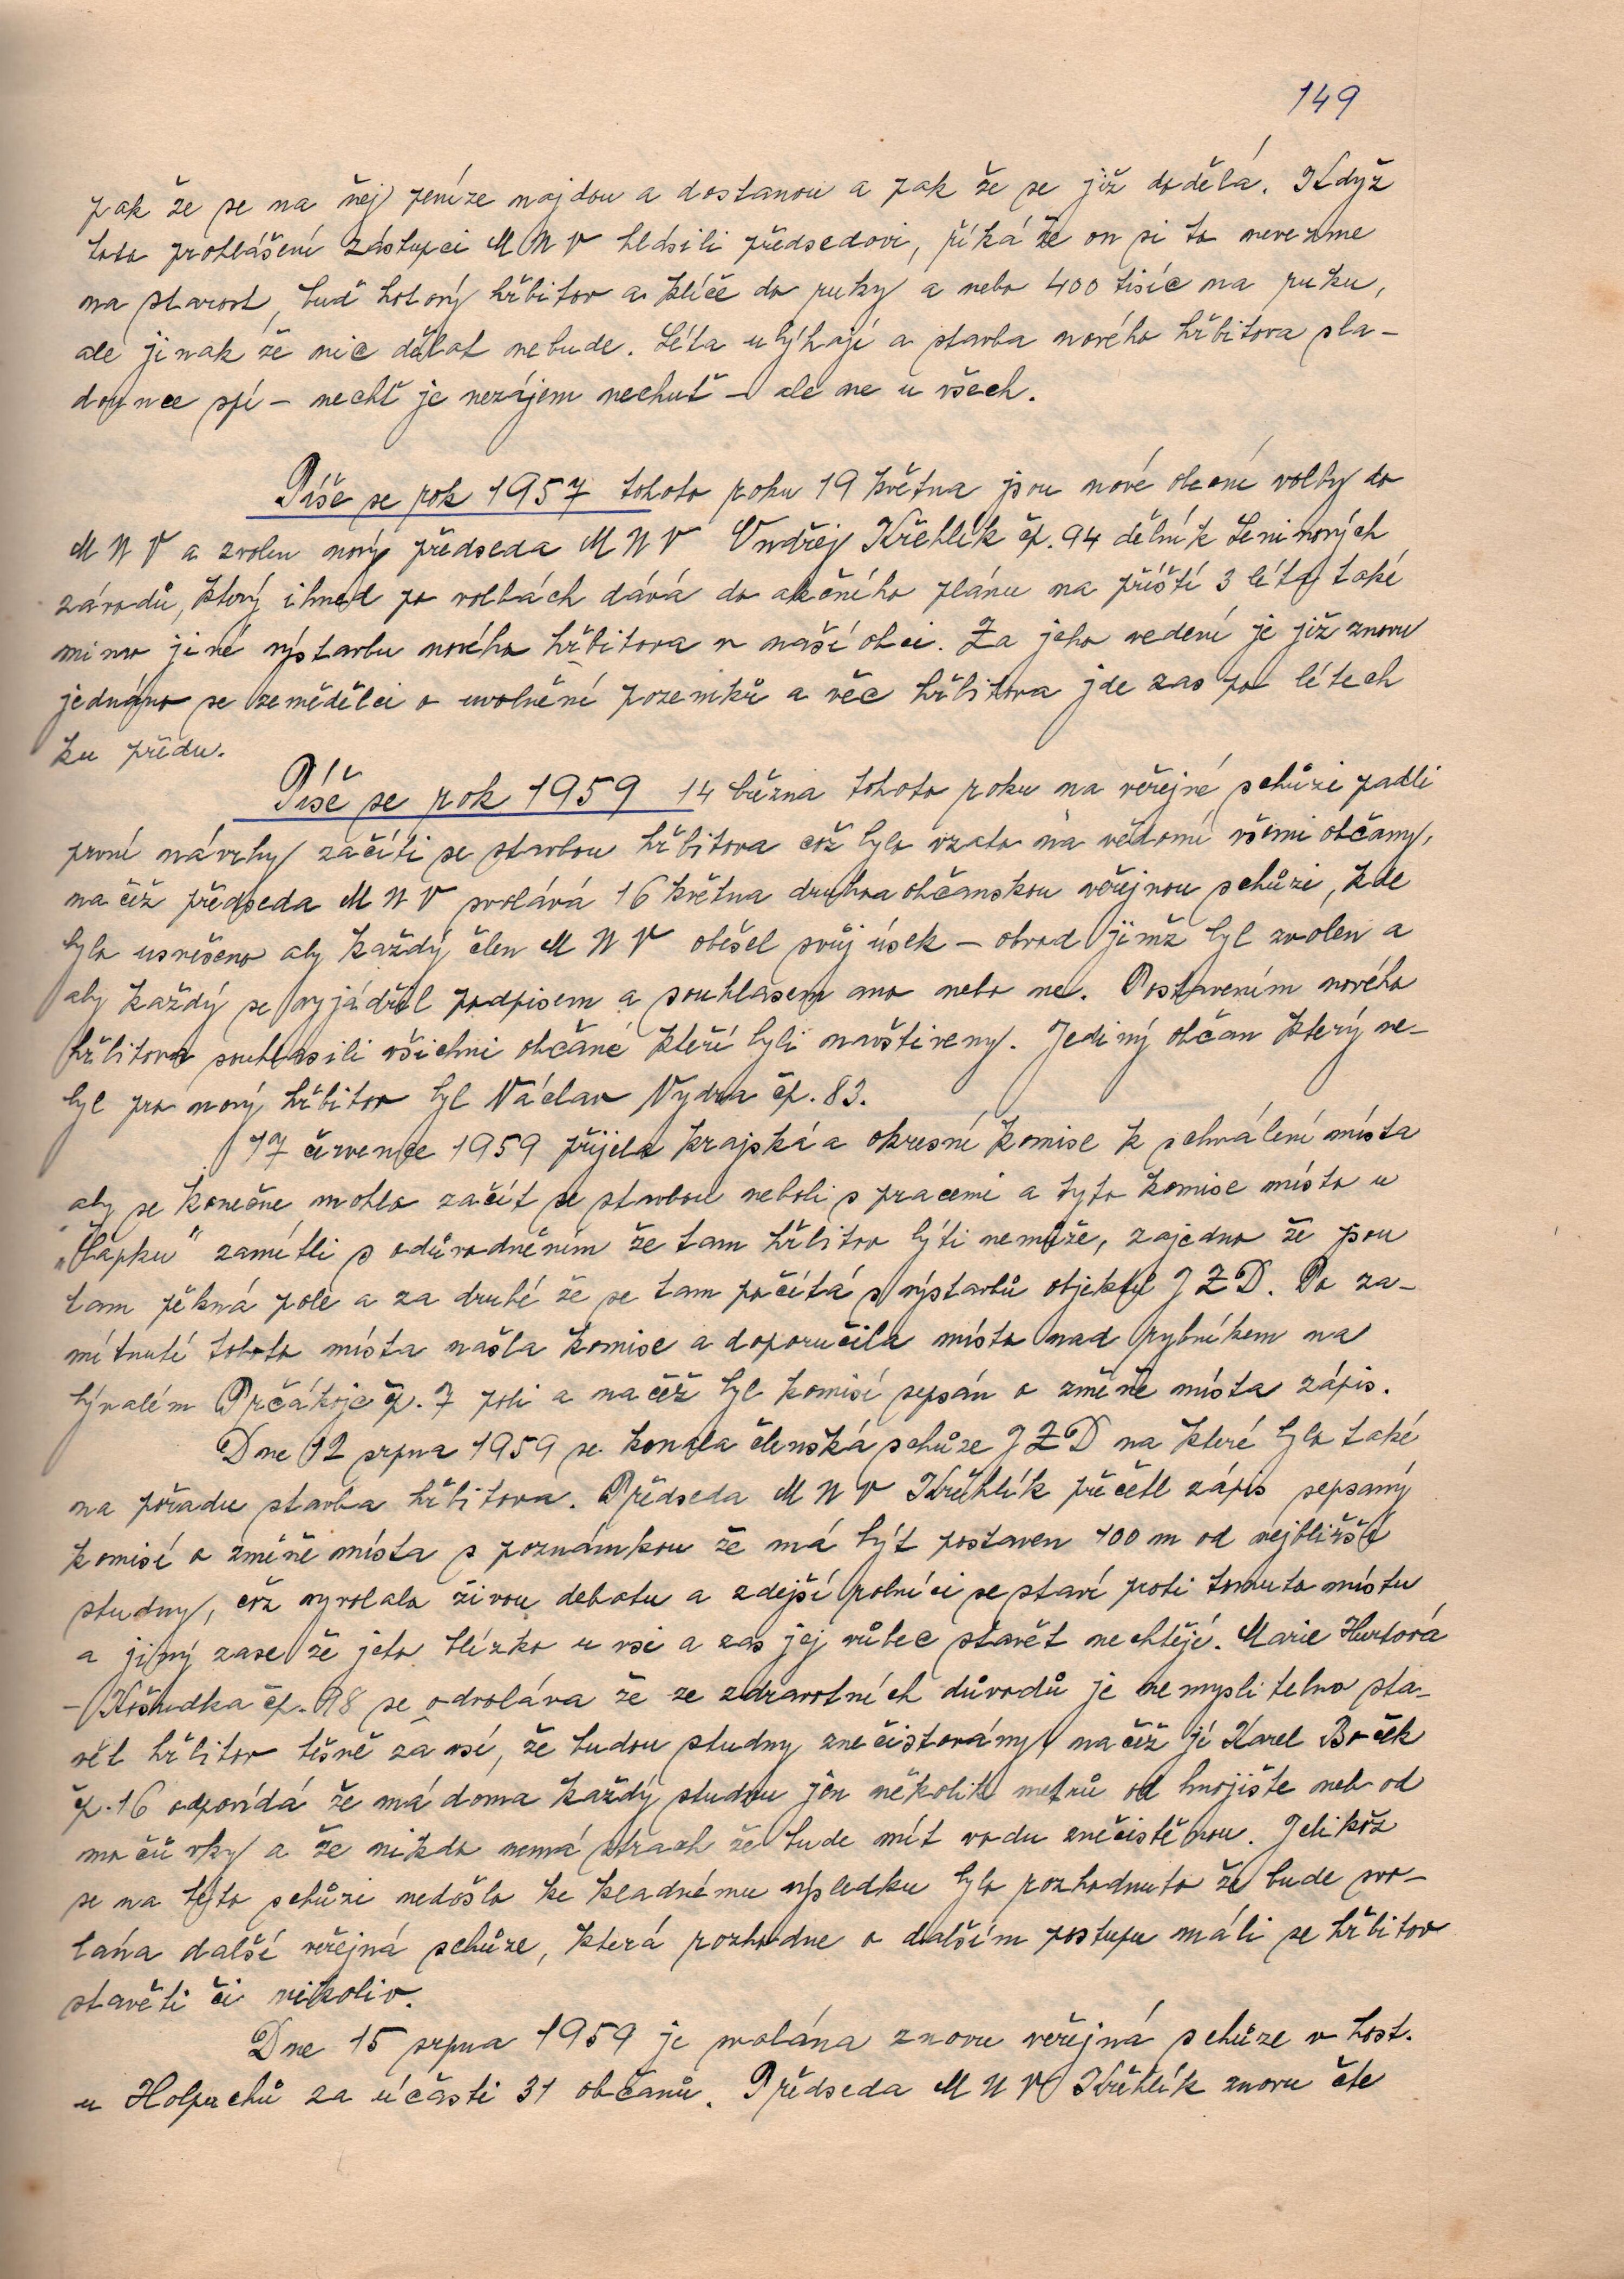 149
pak že se na něj peníze najdou a dostanou a pak že se již dodělá. Když
toto prohlášení zástupci M N V hlásili předsedovi, říká že on si to nevezme
na starost, buď hotový hřbitov a klíče do ruky a nebo 400 tisíc na ruku,
ale jinak že nic dělat nebude. Léta ubýhají a stavba nového hřbitova sla-
dounce spí - nechť je nezájem nechuť - ale ne u všech.
Píše se rok 1957 tohoto roku 19 května jsou nové obecní volby do
M N V a zvolen nový předseda M N V Ondřej Křehlík čp. 94 dělník Leninových
závodů, který ihned po volbách dává do akčního plánu na příští 3 léta také
mimo jiné výstavbu nového hřbitova v naší obci. Za jeho vedení je již znovu
jednáno se zemědělci o uvolnění pozemků a věc hřbitova jde zas po létech
ku předu.
Píše se rok 1959 14 března tohoto roku na veřejné schůzi padli
první návrhy začíti se stavbou hřbitova což bylo vzato na vědomí všemi občany,
načež předseda M N V svolává 16 května druhou občanskou veřejnou schůzi, kde
bylo usnešeno aby každý člen M N V obešel svůj úsek - obvod jimž byl zvolen a
aby každý se vyjádřil podpisem a souhlasem ano nebo ne. Postavením nového
hřbitova souhlasili všichni občané kteří byli navštiveny. Jediný občan který ne-
byl pro nový hřbitov byl Václav Vydra čp. 83.
17 července 1959 přijela krajská a okresní komise k schválení místa
aby se konečne mohlo začít se stavbou neboli s pracemi a tyto komise místo u
„Čapku" zamítli s odůvodněním že tam hřbitov býti nemůže, zajedno že jsou
tam pěkná pole a za druhé že se tam počítá s výstavbů objektů J Z D. Po za-
mítnutí tohoto místa našla komise a doporučila místo nad rybníkem na
bývalém Prčákoje čp. 7 poli a načež byl komisí sepsán o změně místa zápis.
Dne 12 srpna 1959 se konala členská schůze J Z D na které bylo také
na pořadu stavba hřbitova. Předseda M N V Křehlík přečetl zápis sepsaný
komisí o změně místa s poznámkou že má být postaven 100 m od nejbližší
studny, což vyvolalo živou debatu a zdejší rolníci se staví proti tomuto místu
a jiný zase že jeto blízko u vsi a zas jej vůbec stavět nechtějí. Marie Hurtová
- Košudka čp. 98 se odvoláva že ze zdravotních důvodů je nemyslitelno sta-
vět hřbitov těšně za vsí, že budou studny znečistovány načež jí Karel Boček
čp. 16 odpovídá že má doma každý studnu jen několik metrů od hnojište neb od
močůvky a že nikdo nemá strach že bude mít vodu znečistěnou. Jelikož
se na této schůzi nedošlo ke kladnému výsledku bylo rozhodnuto že bude svo-
lána další veřejná schůze, která rozhodne o dalším postupu máli se hřbitov
stavěti či nikoliv.
Dne 15 srpna 1959 je svolána znovu veřejná schůze v host.
u Holpuchů za účasti 31 občanů. Předseda M N V Křehlík znovu čte